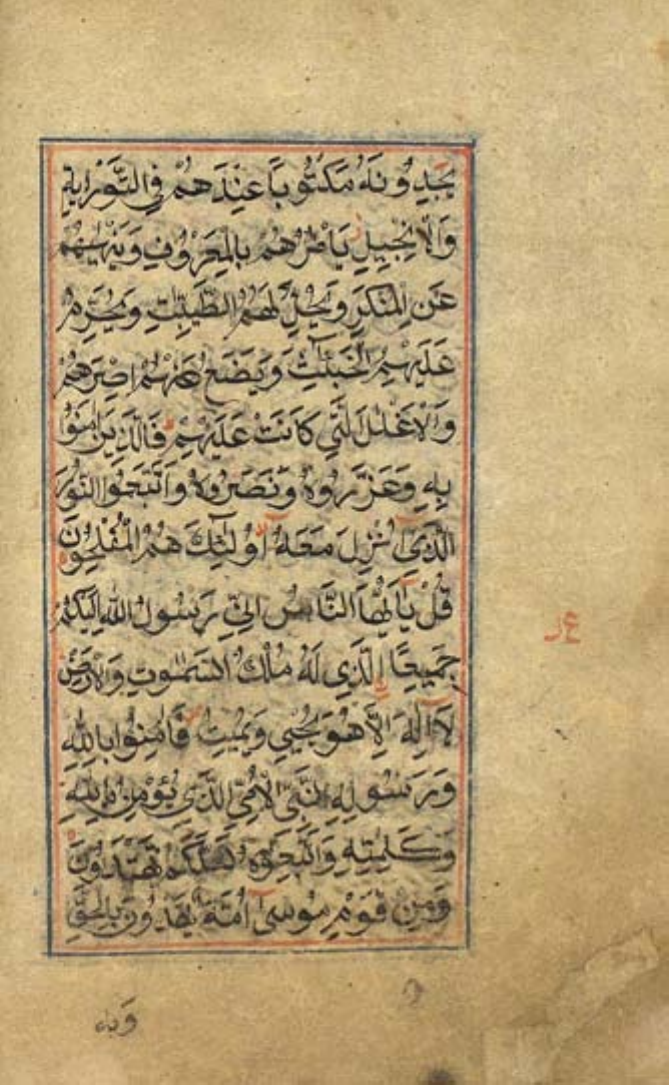 يَجِدُونَهُ مَكْتُوبًا عِنْدَهُمْ فِي التَّوْرٰيةِ
وَالْاِنْجِيلِ يَاْمُرُهُمْ بِالْمَعْرُوفِ وَيَنْهٰيهُمْ
عَنِ الْمُنْكَرِ وَيُحِلُّ لَهُمُ الطَّيِّبٰتِ وَيُحَرِّمُ
عَلَيْهِمُ الْخَبٰٓئِثَ وَيَضَعُ عَنْهُمْ اِصْرَهُمْ
وَالْاَغْلٰلَ الَّتِي كَانَتْ عَلَيْهِمْ فَالَّذِينَ اٰمَنُوا
بِهِ وَعَزَّرُوهُ وَنَصَرُوهُ وَاتَّبَعُوا النُّورَ
الَّذِيٓ اُنْزِلَ مَعَهُ اُولٰٓئِكَ هُمُ الْمُفْلِحُونَ
قُلْ يٰٓاَيُّهَا النَّاسُ اِنِّي رَسُولُ اللهِ اِلَيْكُمْ
جَمِيعًا الَّذِي لَهُ مُلْكُ السَّمٰوٰتِ وَالْاَرْضِ
لَآ اِلٰهَ اِلَّا هُوَ يُحْيِي وَيُمِيتُ فَاٰمِنُوا بِاللهِ
وَرَسُولِهِ النَّبِيِّ الْاُمِّيِّ الَّذِي يُؤْمِنُ بِاللهِ
وَكَلِمٰتِهِ وَاتَّبِعُوهُ لَعَلَّكُمْ تَهْتَدُونَ
وَمِنْ قَوْمِ مُوسٰٓى اُمَّةٌ يَهْدُونَ بِالْحَقِّ
وَبِهِ